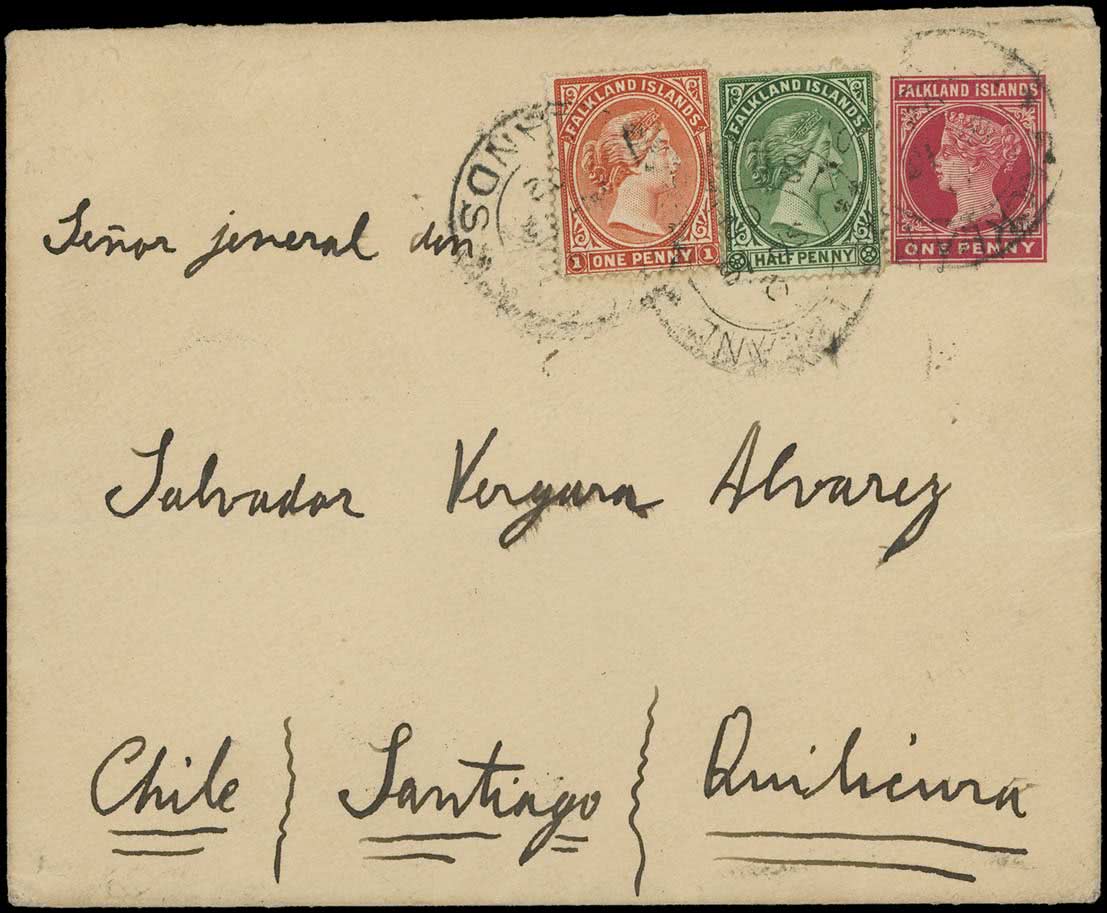 FALKLAND ISLANDS
1 ONE PENNY 1
FALKLAND ISLANDS
HALF PENNY
FALKLAND ISLANDS
ONE PENNY
Señor jeneral don
Salvador Vergara Alvarez
Chile Santiago Quilicura